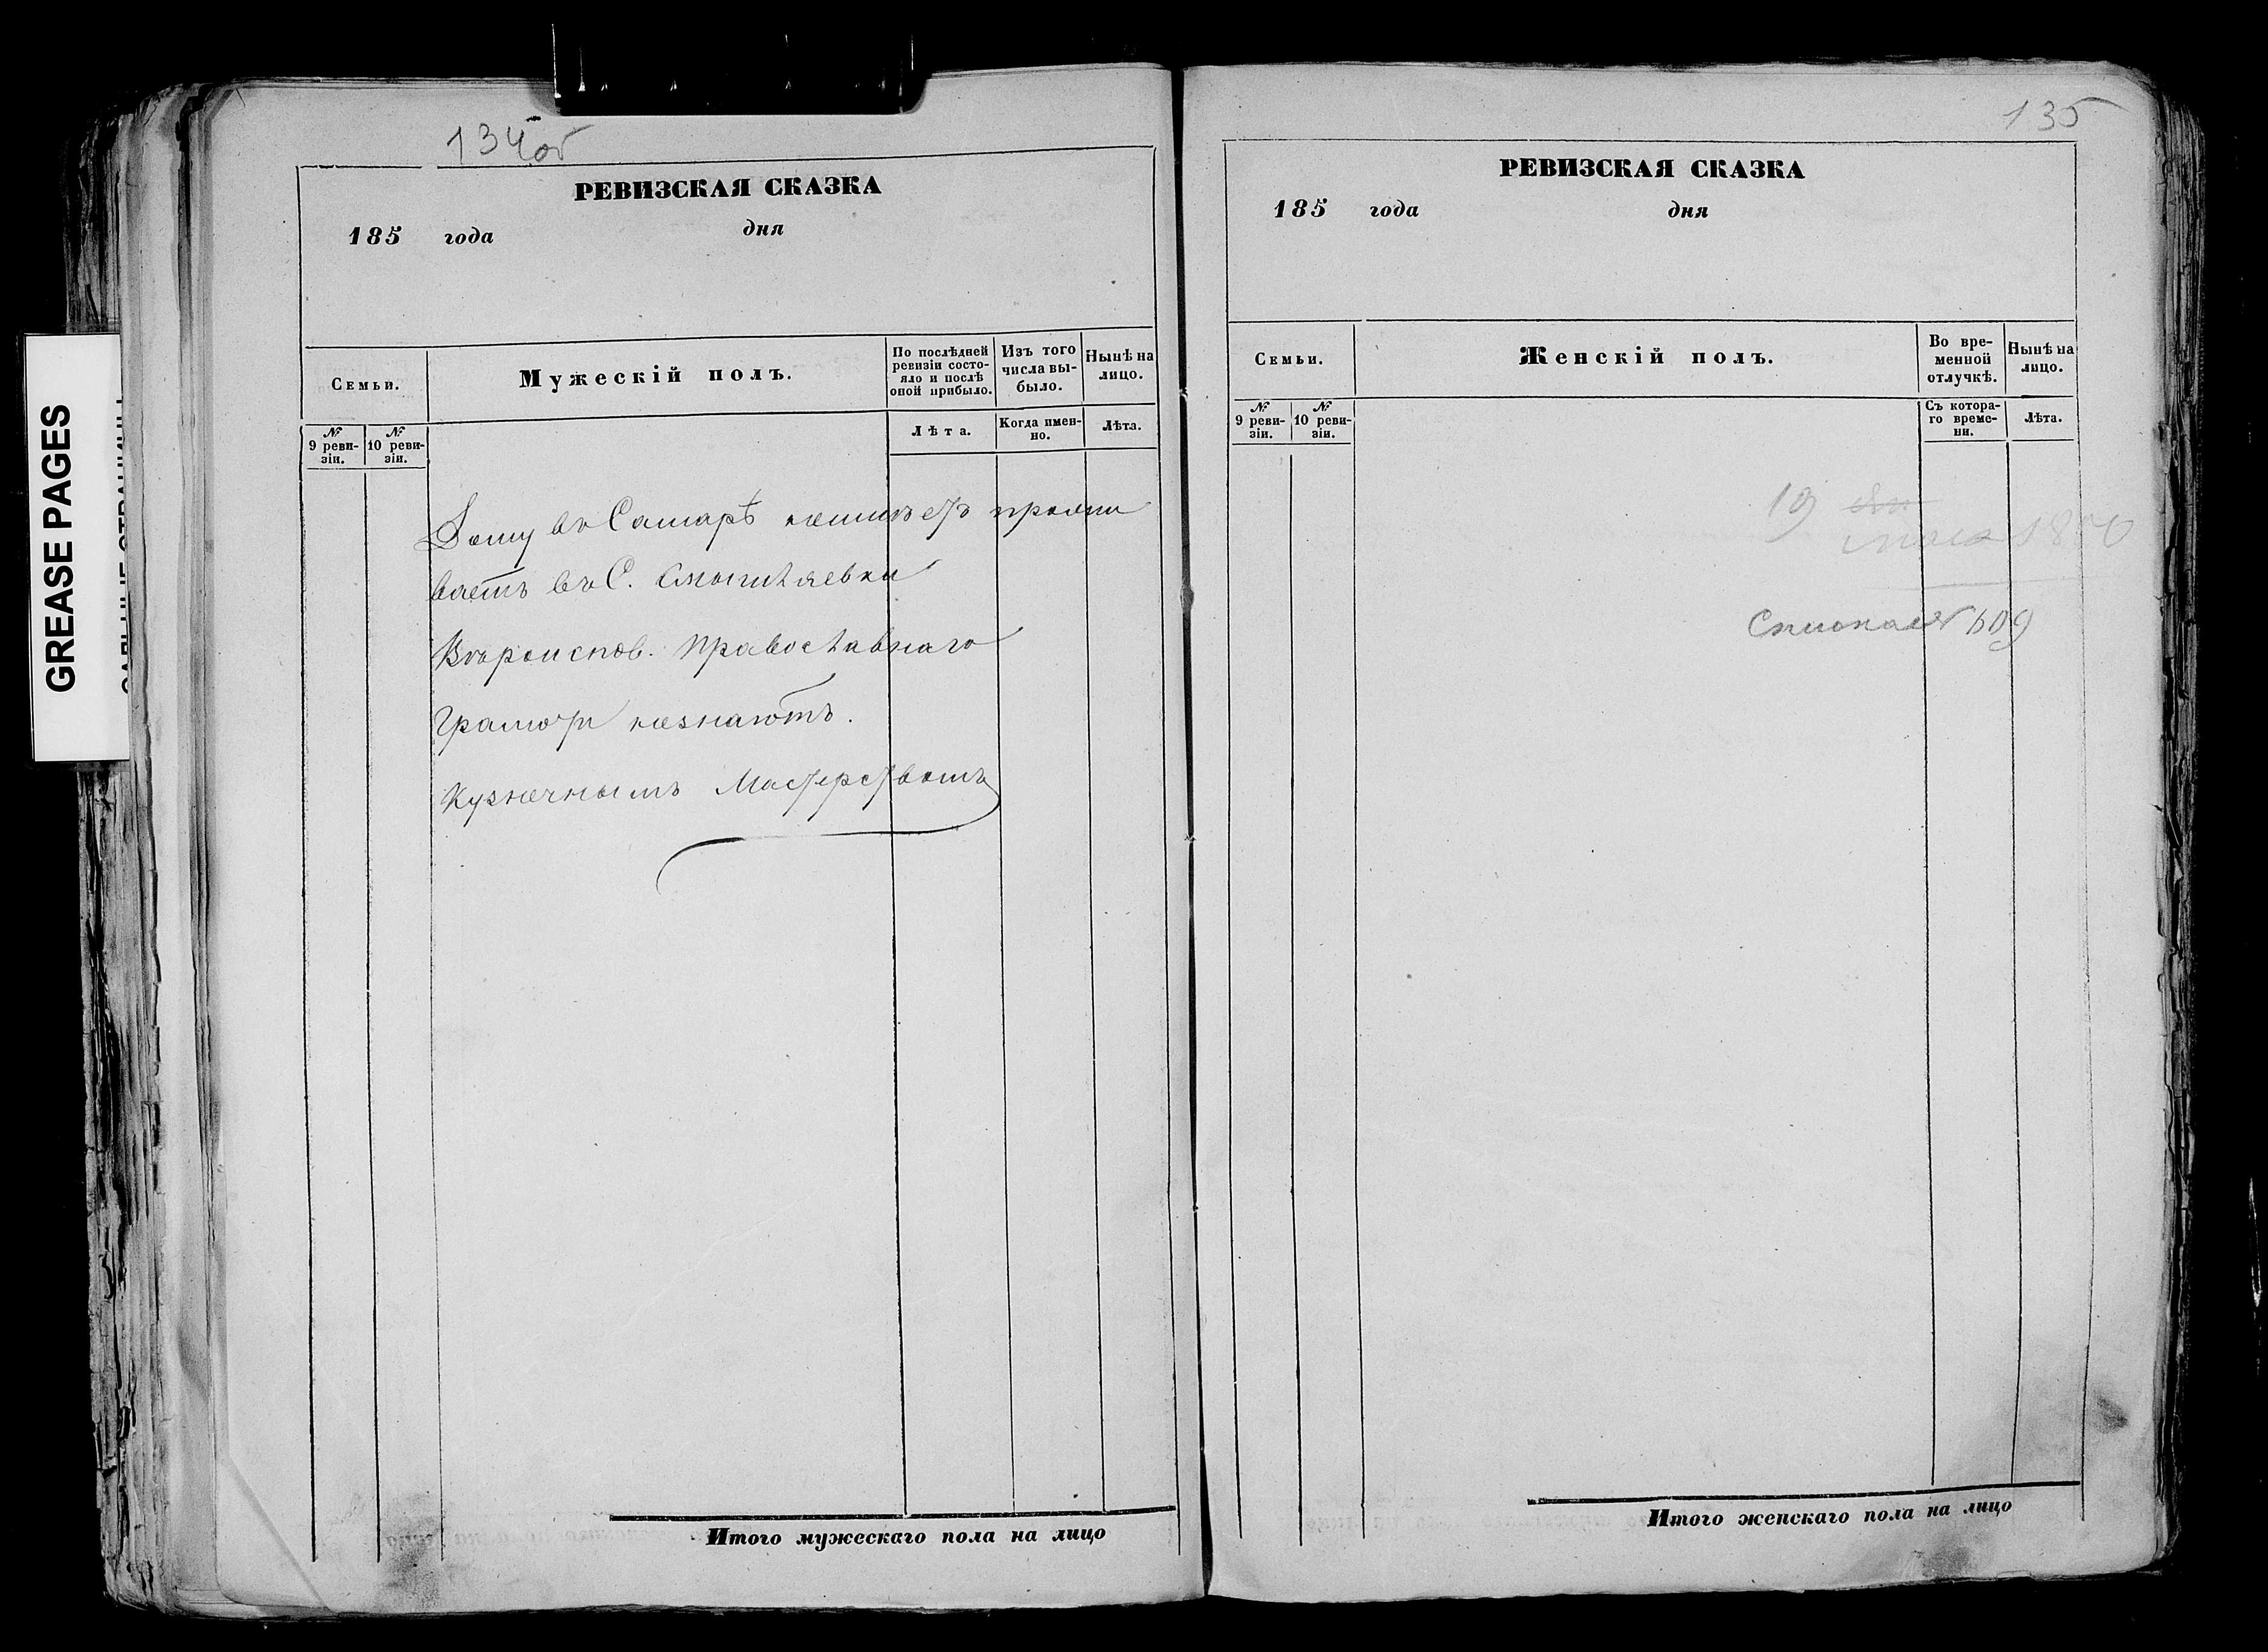 GREASE PAGES
134об
РЕВИЗСКАЯ СКАЗКА
185 года дня
Семьи.
Мужескій полъ.
По послѣдней ревизіи состо-
яло и послѣ
оной прибыло.
Изъ того
числа вы-
было.
Нынѣ на
лицо.
№ 9 реви-
зіи.
№ 10 реви-
зіи.
Лѣта.
Когда имен-
но.
Лѣта.
Дому въ Самарѣ неимѣетъ прожи
ваетъ въ С. Смышляевки
Вѣроиспов. Православнаго
Грамоти незнаютъ.
Кузнечнымъ Мастерствомъ
Итого мужескаго пола на лицо
135
РЕВИЗСКАЯ СКАЗКА
185 года дня
Семьи.
Женскій полъ.
Во вре-
менной
отлучкѣ.
Нынѣ на
лицо.
№ 9 реви-
зіи.
№ 10 реви-
зіи.
Съ котора-
го време-
ни.
Лѣта.
19
№ 609
Итого женскаго пола на лицо